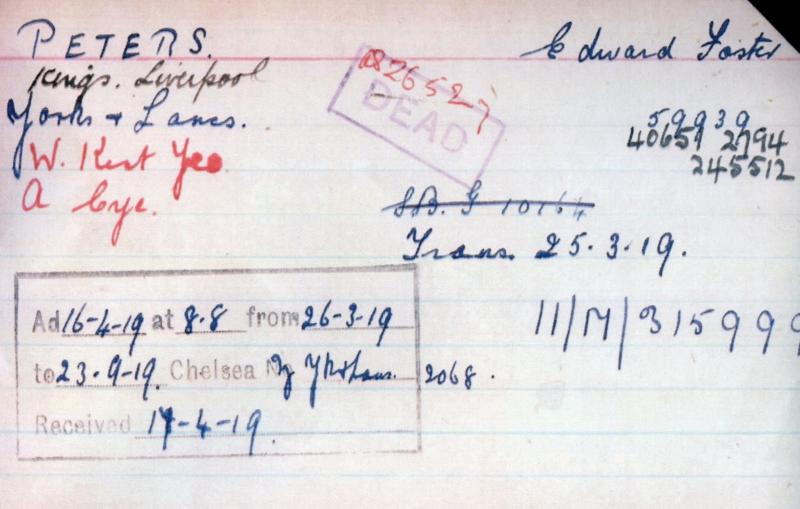 PETERS. Edward Foster
Kings. Liverpool
Yorks & Lancs.
W. Kent Yeo.
A Cyc.
826527
DEAD
59939
40659 2794
245512
S.B. G 10164
Trans. 25.3.19.
11/M/315999
Ad 16-4-19 at 8.8 from 26-3-19
to 23.9-19. Chelsea No Y&Lancs. 2068.
Received 17-4-19.